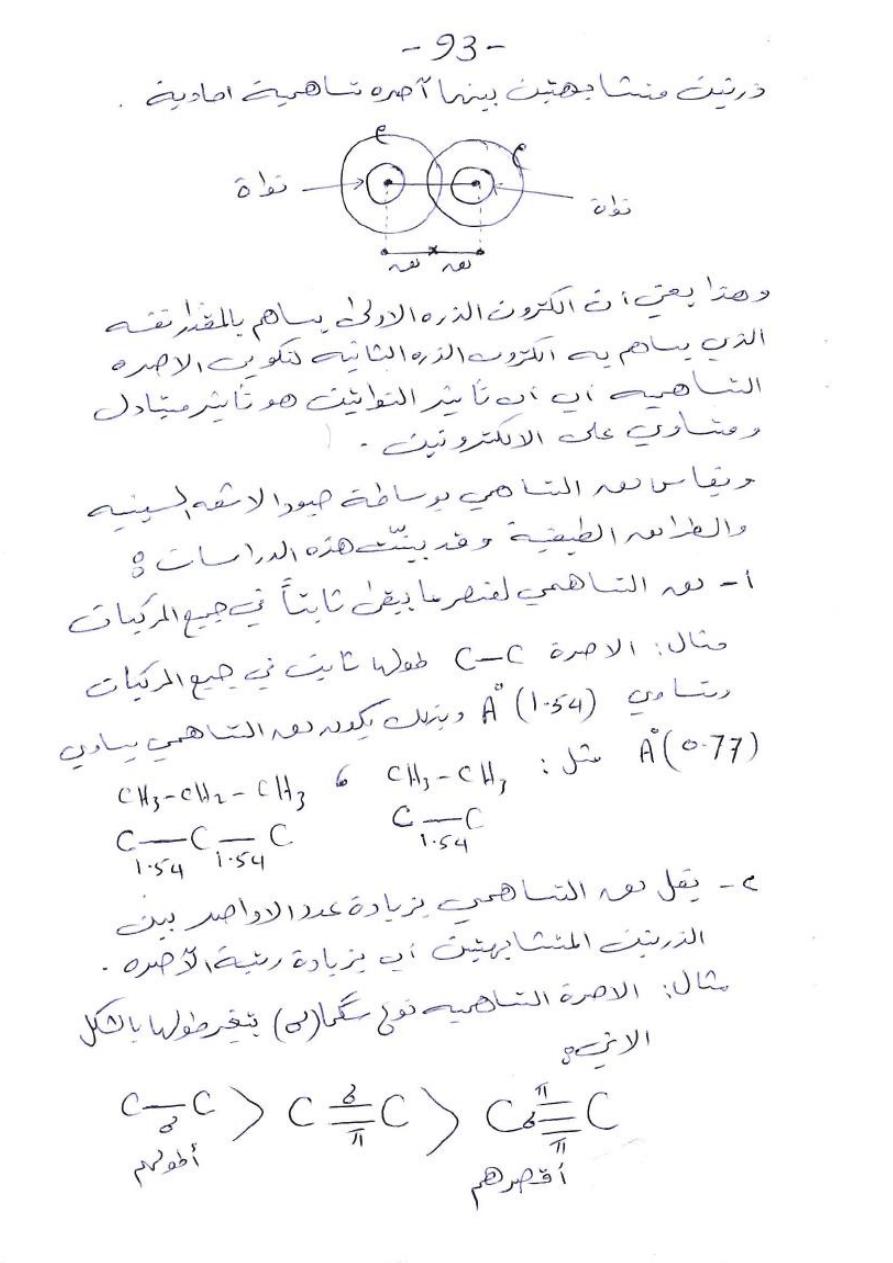 - 93 -
ذرتين متشابهتين بينهما آصره تساهمية احادية .
e e
نواة نواة
نقـ نقـ
وهذا يعني ان الكترون الذره الاولى يساهم بالمقدار نفسه
الذي يساهم به الكترون الذره الثانيه لتكوين الاصره
التساهميه أي أن تأثير النواتين هو تأثير متبادل
ومتساوي على الالكترونين .
ويقاس نقـ التساهمي بوساطة حيود الاشعه السينيه
والطرائق الطيفية وقد بينّت هذه الدراسات :
أ- نقـ التساهمي لعنصر ما يبقى ثابتاً في جميع المركبات
مثال: الاصرة C-C طولها ثابت في جميع المركبات
وتساوي A° (1.54) وبذلك يكون نقـ التساهمي يساوي
A° (0.77) مثل : CH3-CH3 ، CH3-CH2-CH3
C—C C—C—C
1.54 1.54 1.54
٢- يقل نقـ التساهمي بزيادة عدد الاواصر بين
الذرتين المتشابهتين أي بزيادة رتبة الآصره .
مثال: الاصرة التساهميه نوع سگما (σ) يتغير طولها بالشكل
الاتي:
C—C > C=C > C≡C
σ σ π π σ π
أطولهم أقصرهم